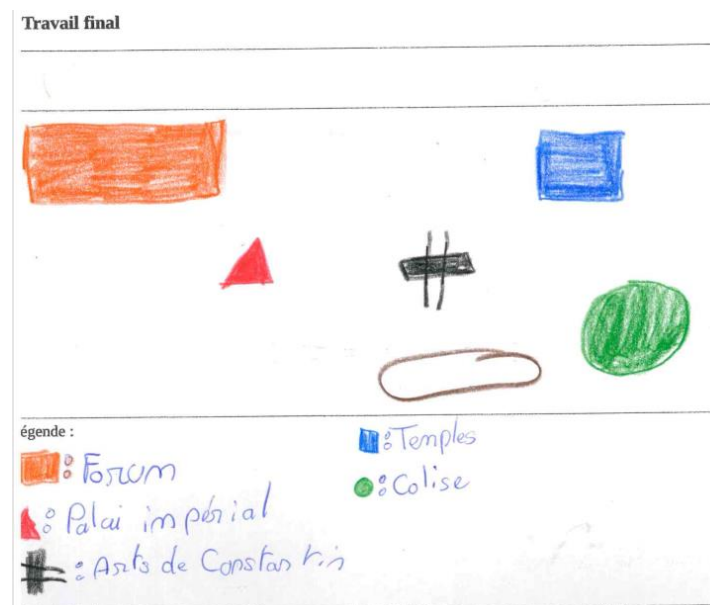 Travail final
égende :
: Forum
: Palai impérial
: Arts de Constantin
: Temples
: Colise